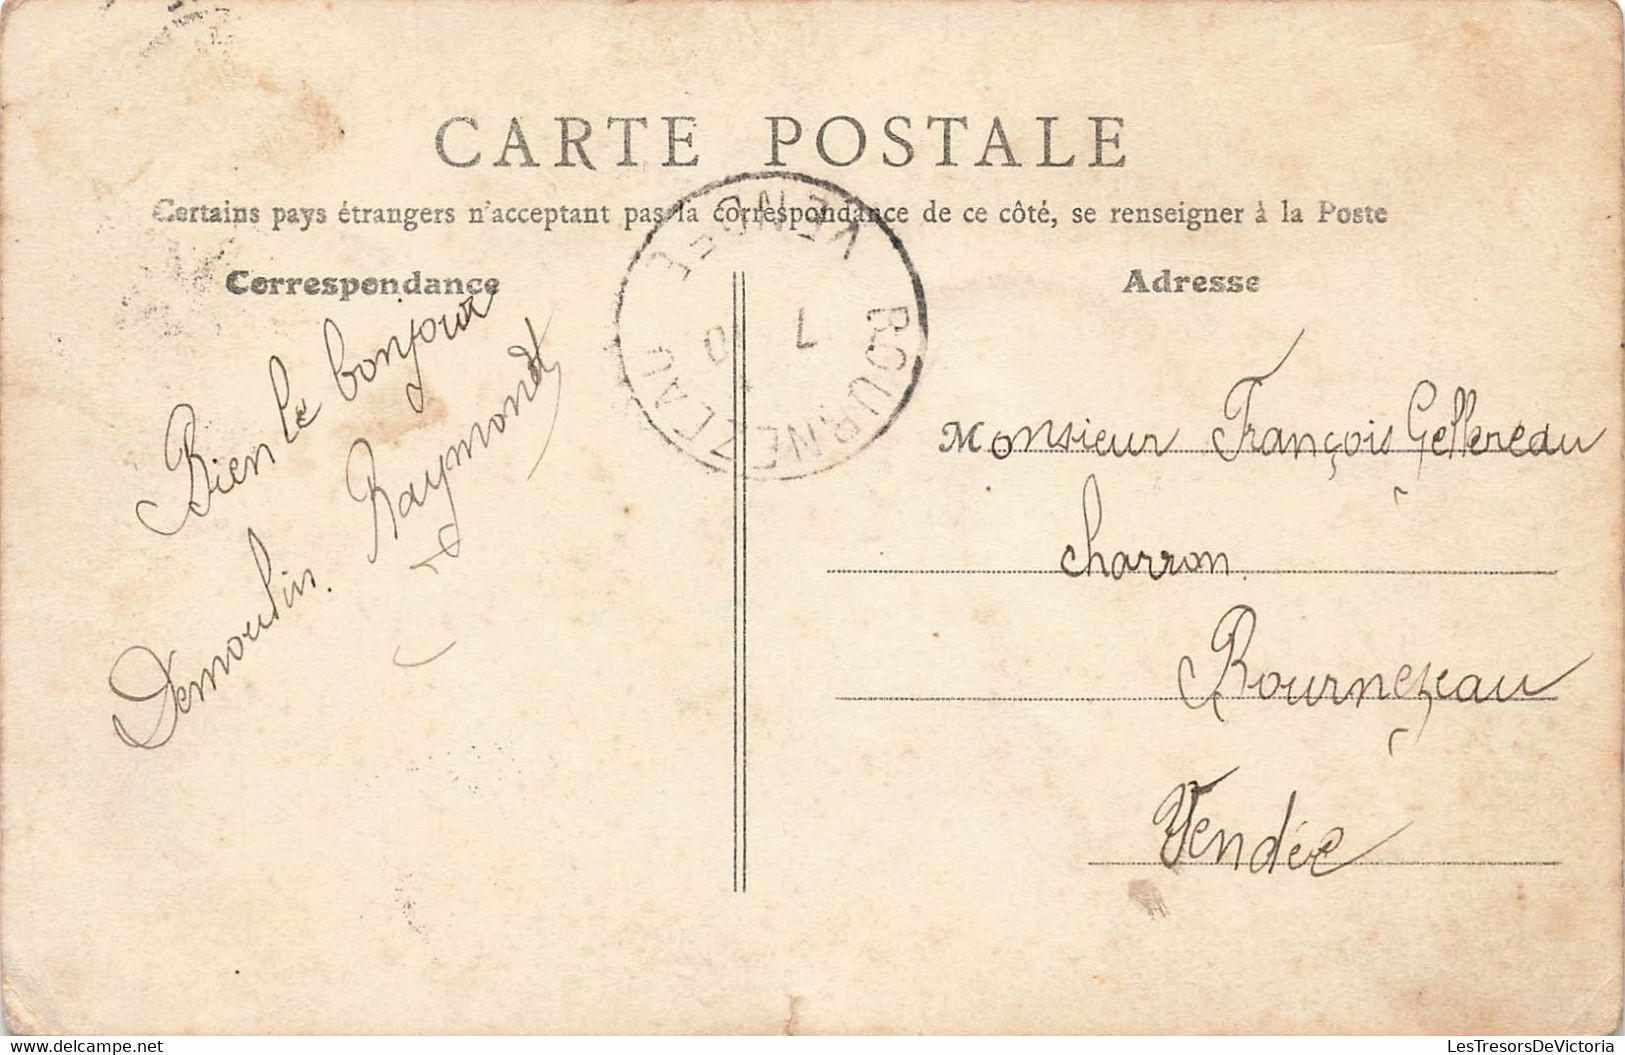 CARTE POSTALE
Certains pays étrangers n'acceptant pas la correspondance de ce côté, se renseigner à la Poste
Correspondance
Adresse
Bien le bonjour
Demoulin Raymond
VENDEE
BOURNEZEAU
Monsieur François Gellereau
charron
Bournezeau
Vendée
www.delcampe.net
lestresorsdevictoria
LesTresorsDeVictoria